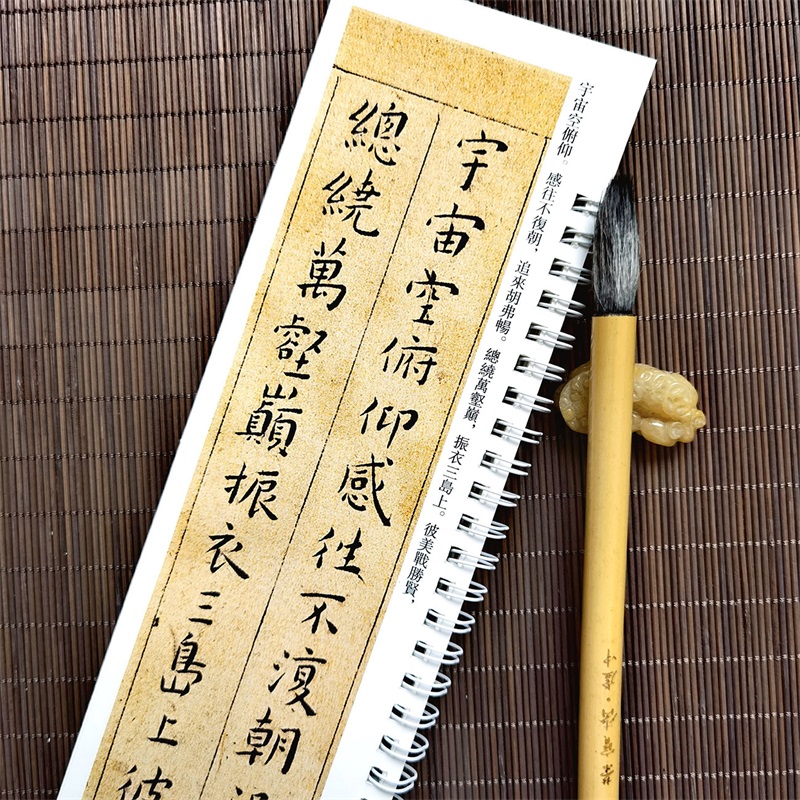 宇宙空俯仰。感往不復朝，追來胡弗暢。總繞萬壑巔，振衣三島上。彼美戰勝賢，
宇宙空俯仰感往不復朝
總繞萬壑巔振衣三島上彼